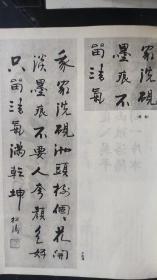 家洗硯
墨痕不
留清氣
我家洗硯池頭樹個個花開
淡墨痕不要人夸顏色好
只留清氣滿乾坤